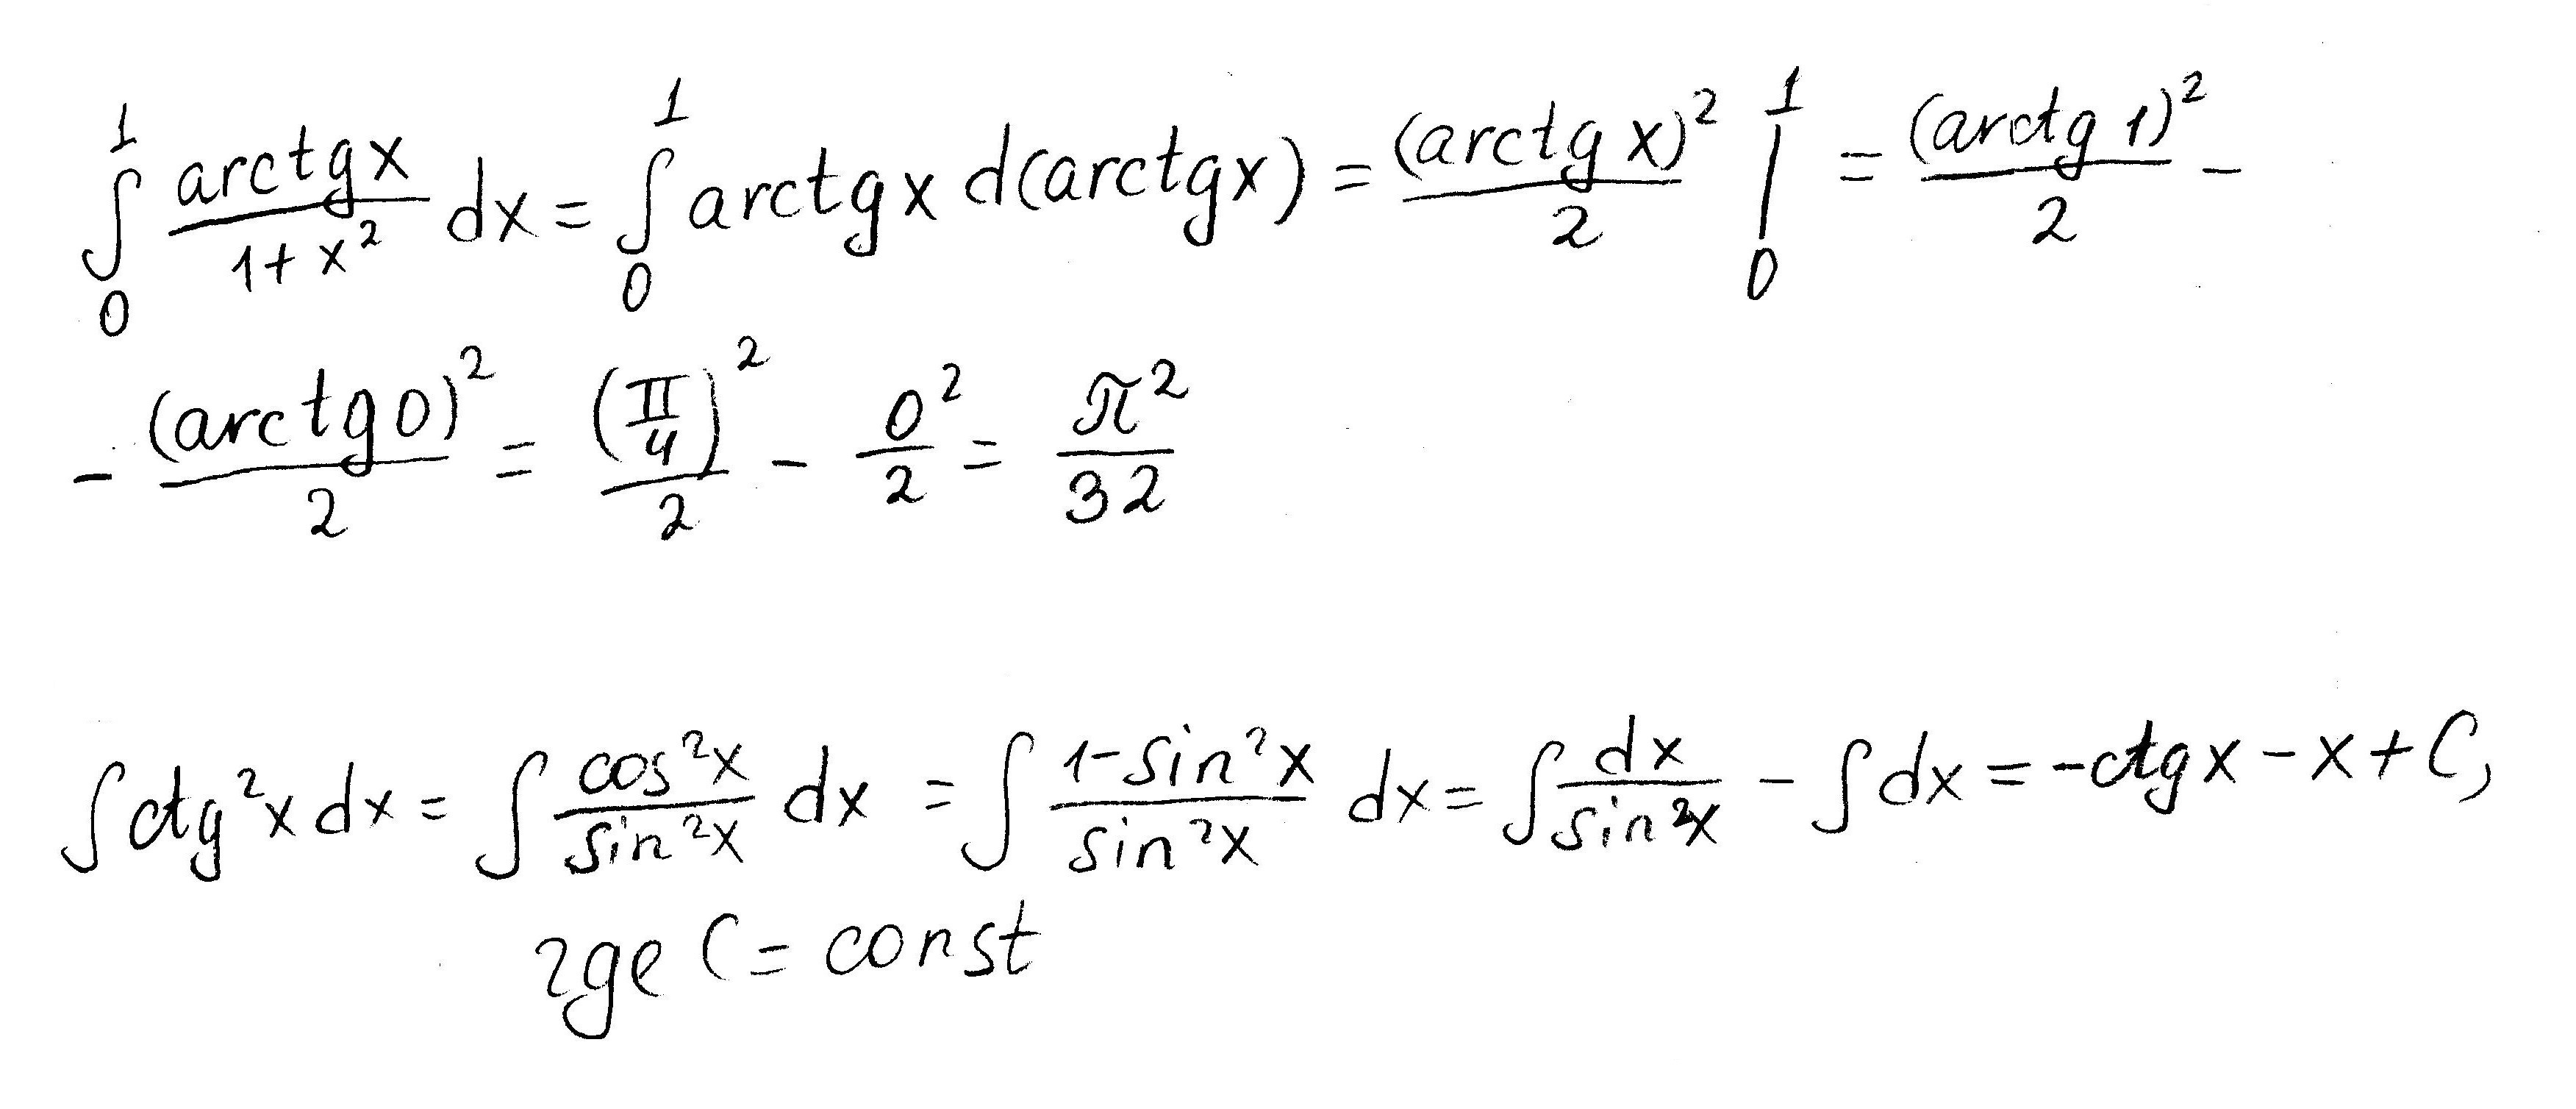 ∫₀¹ arctgx/(1+x²) dx = ∫₀¹ arctgx d(arctgx) = (arctg x)²/2 |₀¹ = (arctg 1)²/2 -
- (arctg 0)²/2 = (π/4)²/2 - 0²/2 = π²/32
∫ctg²x dx = ∫ cos²x/sin²x dx = ∫ (1-sin²x)/sin²x dx = ∫ dx/sin²x - ∫dx = -ctgx - x + C,
где C = const